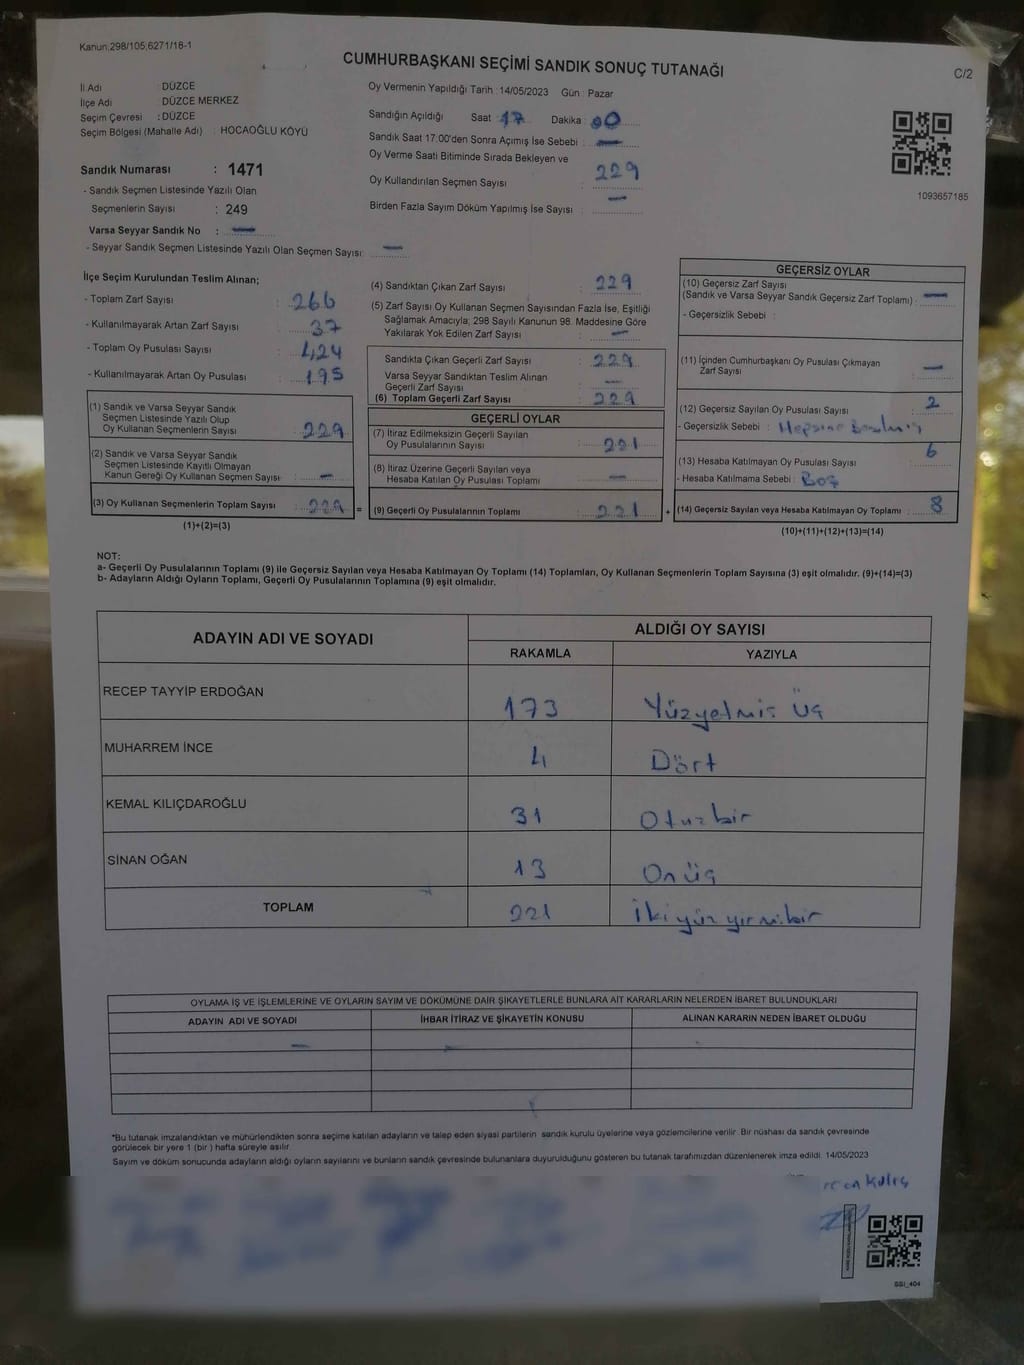 Kanun,298/105,6271/16-1
CUMHURBAŞKANI SEÇİMİ SANDIK SONUÇ TUTANAĞI
C/2
İl Adı : DÜZCE
İlçe Adı DÜZCE MERKEZ
Seçim Çevresi : DÜZCE
Seçim Bölgesi (Mahalle Adı) : HOCAOĞLU KÖYÜ
Sandık Numarası : 1471
- Sandık Seçmen Listesinde Yazılı Olan
Seçmenlerin Sayısı : 249
Varsa Seyyar Sandık No : —
- Seyyar Sandık Seçmen Listesinde Yazılı Olan Seçmen Sayısı: —
Oy Vermenin Yapıldığı Tarih : 14/05/2023 Gün : Pazar
Sandığın Açıldığı Saat : 17 Dakika : 00
Sandık Saat 17:00'den Sonra Açılmış İse Sebebi : —
Oy Verme Saati Bitiminde Sırada Bekleyen ve
Oy Kullandırılan Seçmen Sayısı : 229
Birden Fazla Sayım Döküm Yapılmış İse Sayısı : —
1093657185
İlçe Seçim Kurulundan Teslim Alınan;
- Toplam Zarf Sayısı : 266
- Kullanılmayarak Artan Zarf Sayısı : 37
- Toplam Oy Pusulası Sayısı : 424
- Kullanılmayarak Artan Oy Pusulası : 195
(1) Sandık ve Varsa Seyyar Sandık
Seçmen Listesinde Yazılı Olup
Oy Kullanan Seçmenlerin Sayısı : 229
(2) Sandık ve Varsa Seyyar Sandık
Seçmen Listesinde Kayıtlı Olmayan
Kanun Gereği Oy Kullanan Seçmen Sayısı : —
(3) Oy Kullanan Seçmenlerin Toplam Sayısı : 229 =
(1)+(2)=(3)
(4) Sandıktan Çıkan Zarf Sayısı : 229
(5) Zarf Sayısı Oy Kullanan Seçmen Sayısından Fazla İse, Eşitliği
Sağlamak Amacıyla; 298 Sayılı Kanunun 98. Maddesine Göre
Yakılarak Yok Edilen Zarf Sayısı : —
Sandıkta Çıkan Geçerli Zarf Sayısı : 229
Varsa Seyyar Sandıktan Teslim Alınan
Geçerli Zarf Sayısı : —
(6) Toplam Geçerli Zarf Sayısı : 229
GEÇERLİ OYLAR
(7) İtiraz Edilmeksizin Geçerli Sayılan
Oy Pusulalarının Sayısı : 221
(8) İtiraz Üzerine Geçerli Sayılan veya
Hesaba Katılan Oy Pusulası Toplamı : —
(9) Geçerli Oy Pusulalarının Toplamı : 221 +
GEÇERSİZ OYLAR
(10) Geçersiz Zarf Sayısı
(Sandık ve Varsa Seyyar Sandık Geçersiz Zarf Toplamı) : —
- Geçersizlik Sebebi :
(11) İçinden Cumhurbaşkanı Oy Pusulası Çıkmayan
Zarf Sayısı : —
(12) Geçersiz Sayılan Oy Pusulası Sayısı : 2
- Geçersizlik Sebebi : Hepsine Basılmış
(13) Hesaba Katılmayan Oy Pusulası Sayısı : 6
- Hesaba Katılmama Sebebi : Boş
(14) Geçersiz Sayılan veya Hesaba Katılmayan Oy Toplamı : 8
(10)+(11)+(12)+(13)=(14)
NOT:
a- Geçerli Oy Pusulalarının Toplamı (9) ile Geçersiz Sayılan veya Hesaba Katılmayan Oy Toplamı (14) Toplamları, Oy Kullanan Seçmenlerin Toplam Sayısına (3) eşit olmalıdır. (9)+(14)=(3)
b- Adayların Aldığı Oyların Toplamı, Geçerli Oy Pusulalarının Toplamına (9) eşit olmalıdır.
ADAYIN ADI VE SOYADI
ALDIĞI OY SAYISI
RAKAMLA YAZIYLA
RECEP TAYYİP ERDOĞAN 173 Yüzyetmiş Üç
MUHARREM İNCE 4 Dört
KEMAL KILIÇDAROĞLU 31 Otuzbir
SİNAN OĞAN 13 Onüç
TOPLAM 221 İkiyüz yirmibir
OYLAMA İŞ VE İŞLEMLERİNE VE OYLARIN SAYIM VE DÖKÜMÜNE DAİR ŞİKAYETLERLE BUNLARA AİT KARARLARIN NELERDEN İBARET BULUNDUKLARI
ADAYIN ADI VE SOYADI İHBAR İTİRAZ VE ŞİKAYETİN KONUSU ALINAN KARARIN NEDEN İBARET OLDUĞU
*Bu tutanak imzalandıktan ve mühürlendikten sonra seçime katılan adayların ve talep eden siyasi partilerin sandık kurulu üyelerine veya gözlemcilerine verilir. Bir nüshası da sandık çevresinde
görülecek bir yere 1 (bir ) hafta süreyle asılır.
Sayım ve döküm sonucunda adayların aldığı oyların sayılarını ve bunların sandık çevresinde bulunanlara duyurulduğunu gösteren bu tutanak tarafımızdan düzenlenerek imza edildi. 14/05/2023
SSI_404